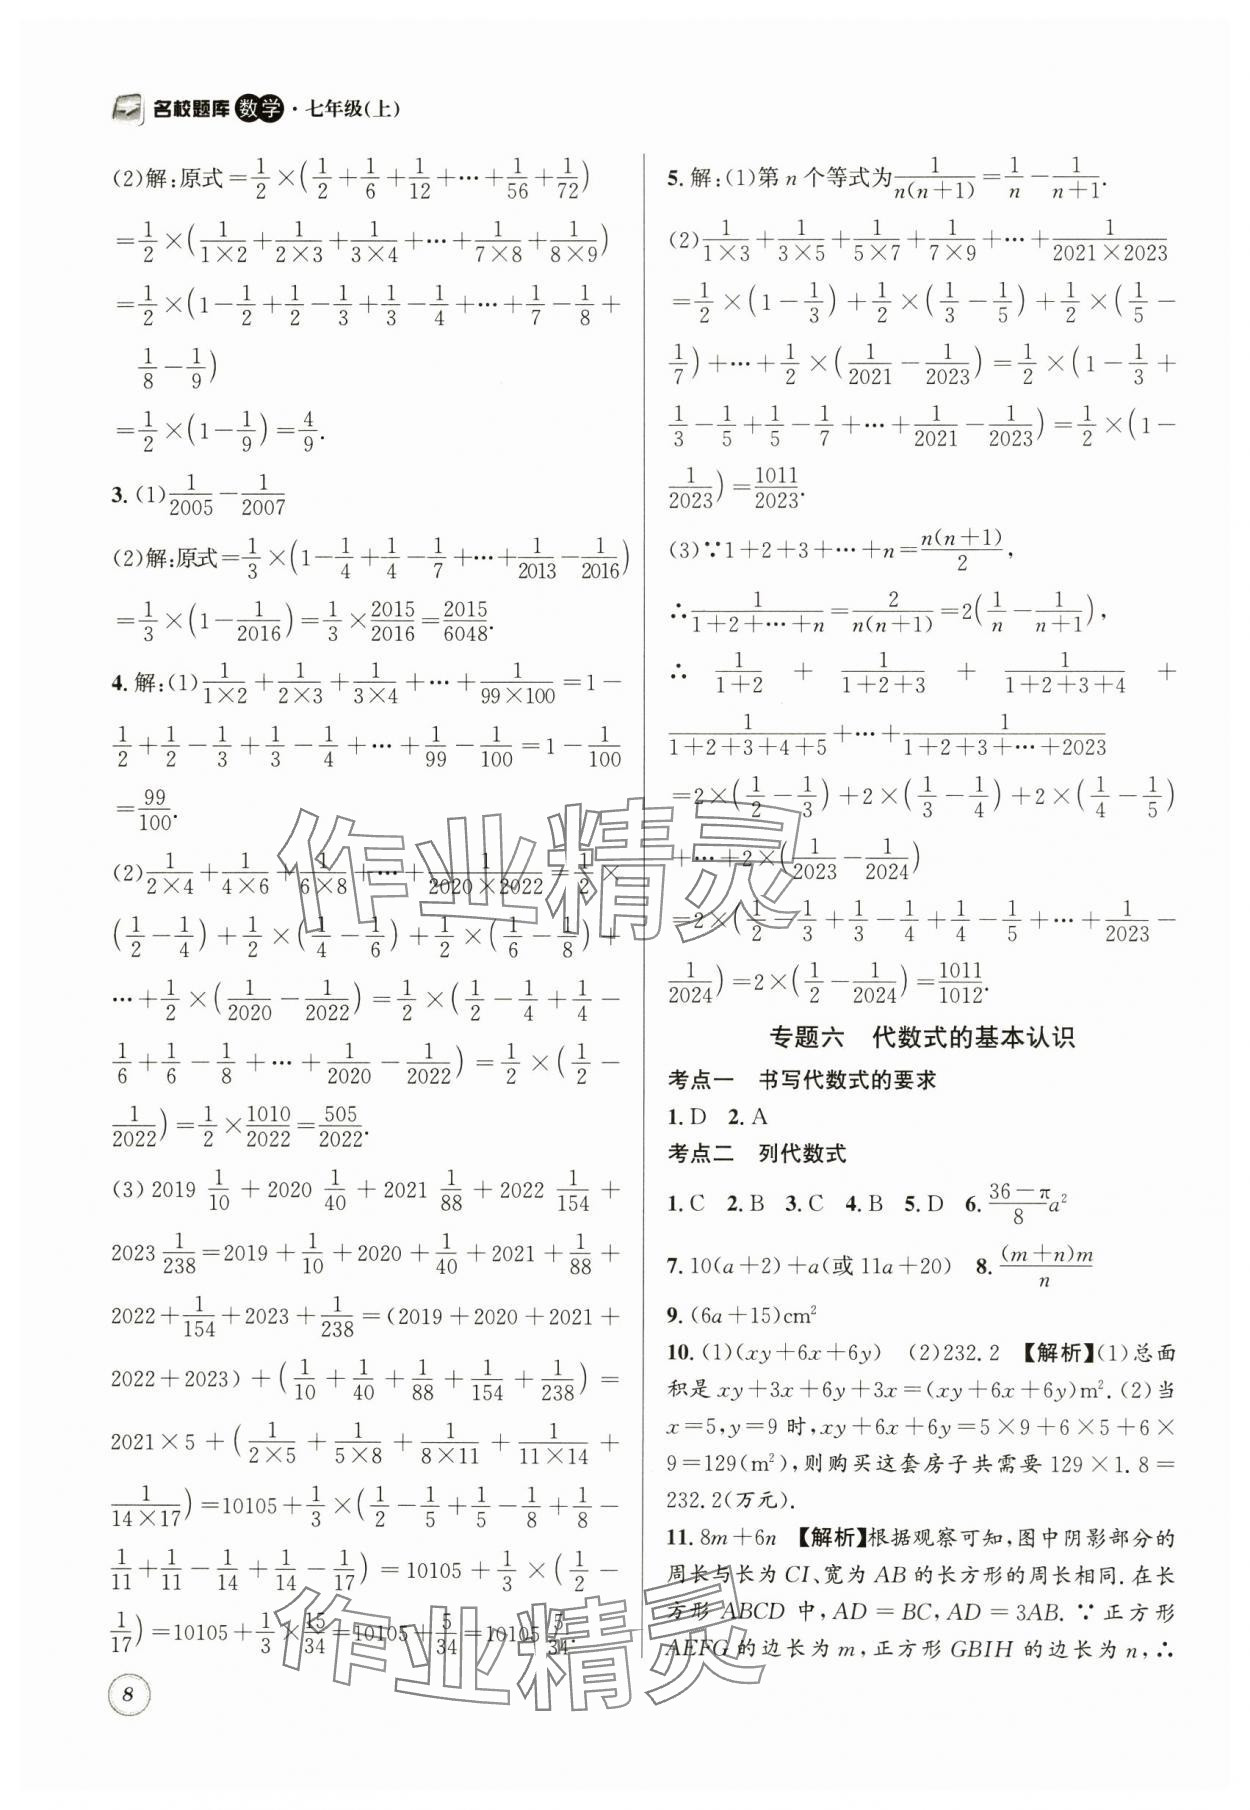 名校题库 数学·七年级(上)
(2)解:原式=1/2×(1/2+1/6+1/12+…+1/56+1/72)
=1/2×(1/(1×2)+1/(2×3)+1/(3×4)+…+1/(7×8)+1/(8×9))
=1/2×(1-1/2+1/2-1/3+1/3-1/4+…+1/7-1/8+
1/8-1/9)
=1/2×(1-1/9)=4/9.
3.(1)1/2005-1/2007
(2)解:原式=1/3×(1-1/4+1/4-1/7+…+1/2013-1/2016)
=1/3×(1-1/2016)=1/3×2015/2016=2015/6048.
4.解:(1)1/(1×2)+1/(2×3)+1/(3×4)+…+1/(99×100)=1-
1/2+1/2-1/3+1/3-1/4+…+1/99-1/100=1-1/100
=99/100.
(2)1/(2×4)+1/(4×6)+1/(6×8)+…+1/(2020×2022)=1/2×
(1/2-1/4)+1/2×(1/4-1/6)+1/2×(1/6-1/8)+
…+1/2×(1/2020-1/2022)=1/2×(1/2-1/4+1/4-
1/6+1/6-1/8+…+1/2020-1/2022)=1/2×(1/2-
1/2022)=1/2×1010/2022=505/2022.
(3)2019 1/10+2020 1/40+2021 1/88+2022 1/154+
2023 1/238=2019+1/10+2020+1/40+2021+1/88+
2022+1/154+2023+1/238=(2019+2020+2021+
2022+2023)+(1/10+1/40+1/88+1/154+1/238)=
2021×5+(1/(2×5)+1/(5×8)+1/(8×11)+1/(11×14)+
1/(14×17))=10105+1/3×(1/2-1/5+1/5-1/8+1/8-
1/11+1/11-1/14+1/14-1/17)=10105+1/3×(1/2-
1/17)=10105+1/3×15/34=10105+5/34=10105 5/34.
8
5.解:(1)第n个等式为1/(n(n+1))=1/n-1/(n+1).
(2)1/(1×3)+1/(3×5)+1/(5×7)+1/(7×9)+…+1/(2021×2023)
=1/2×(1-1/3)+1/2×(1/3-1/5)+1/2×(1/5-
1/7)+…+1/2×(1/2021-1/2023)=1/2×(1-1/3+
1/3-1/5+1/5-1/7+…+1/2021-1/2023)=1/2×(1-
1/2023)=1011/2023.
(3)∵1+2+3+…+n=n(n+1)/2,
∴1/(1+2+…+n)=2/(n(n+1))=2(1/n-1/(n+1)),
∴ 1/(1+2)+1/(1+2+3)+1/(1+2+3+4)+
1/(1+2+3+4+5)+…+1/(1+2+3+…+2023)
=2×(1/2-1/3)+2×(1/3-1/4)+2×(1/4-1/5)
+…+2×(1/2023-1/2024)
=2×(1/2-1/3+1/3-1/4+1/4-1/5+…+1/2023-
1/2024)=2×(1/2-1/2024)=1011/1012.
专题六 代数式的基本认识
考点一 书写代数式的要求
1.D 2.A
考点二 列代数式
1.C 2.B 3.C 4.B 5.D 6.(36-π)/8 a²
7.10(a+2)+a(或11a+20) 8.(m+n)m/n
9.(6a+15)cm²
10.(1)(xy+6x+6y) (2)232.2 【解析】(1)总面
积是xy+3x+6y+3x=(xy+6x+6y)m².(2)当
x=5,y=9时,xy+6x+6y=5×9+6×5+6×
9=129(m²),则购买这套房子共需要129×1.8=
232.2(万元).
11.8m+6n 【解析】根据观察可知,图中阴影部分的
周长与长为CI、宽为AB的长方形的周长相同.在长
方形ABCD中,AD=BC,AD=3AB.∵正方形
AEFG的边长为m,正方形GBIH的边长为n,∴
作业精灵
作业精灵